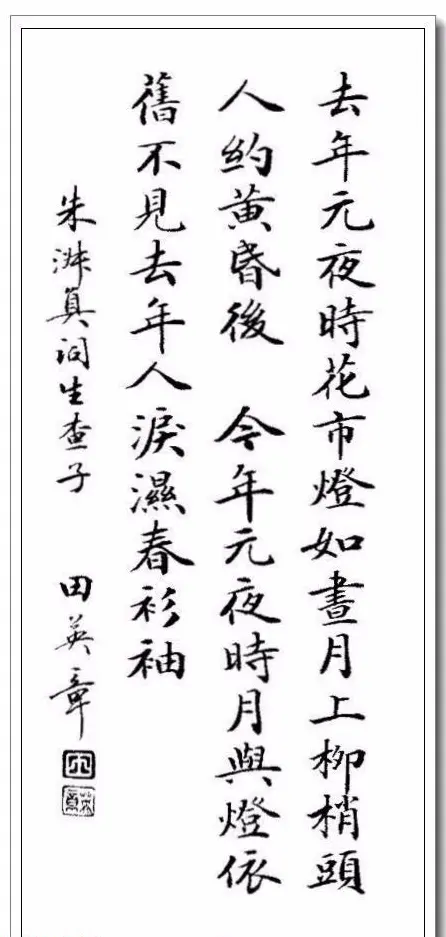 去年元夜時花市燈如晝月上柳梢頭
人約黄昏後　今年元夜時月與燈依
舊不見去年人淚濕春衫袖
朱淑真詞生查子　田英章